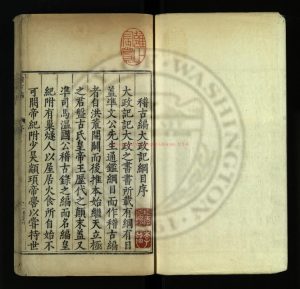 稽古編大政記綱目序
大政記記大政之書書所載有綱有目
蓋準文公先生通鑑綱目而作稽古編
者自洪荒開闢而後推本始繼天立極
之君盤古氏皇帝王歷代之顛末蓋又
準司馬溫國公稽古錄之編而名編皇
紀附有巢燧人以屋居火食所自始不
可闕帝紀附少昊顓頊帝嚳以嘗持世
WASHINGTON